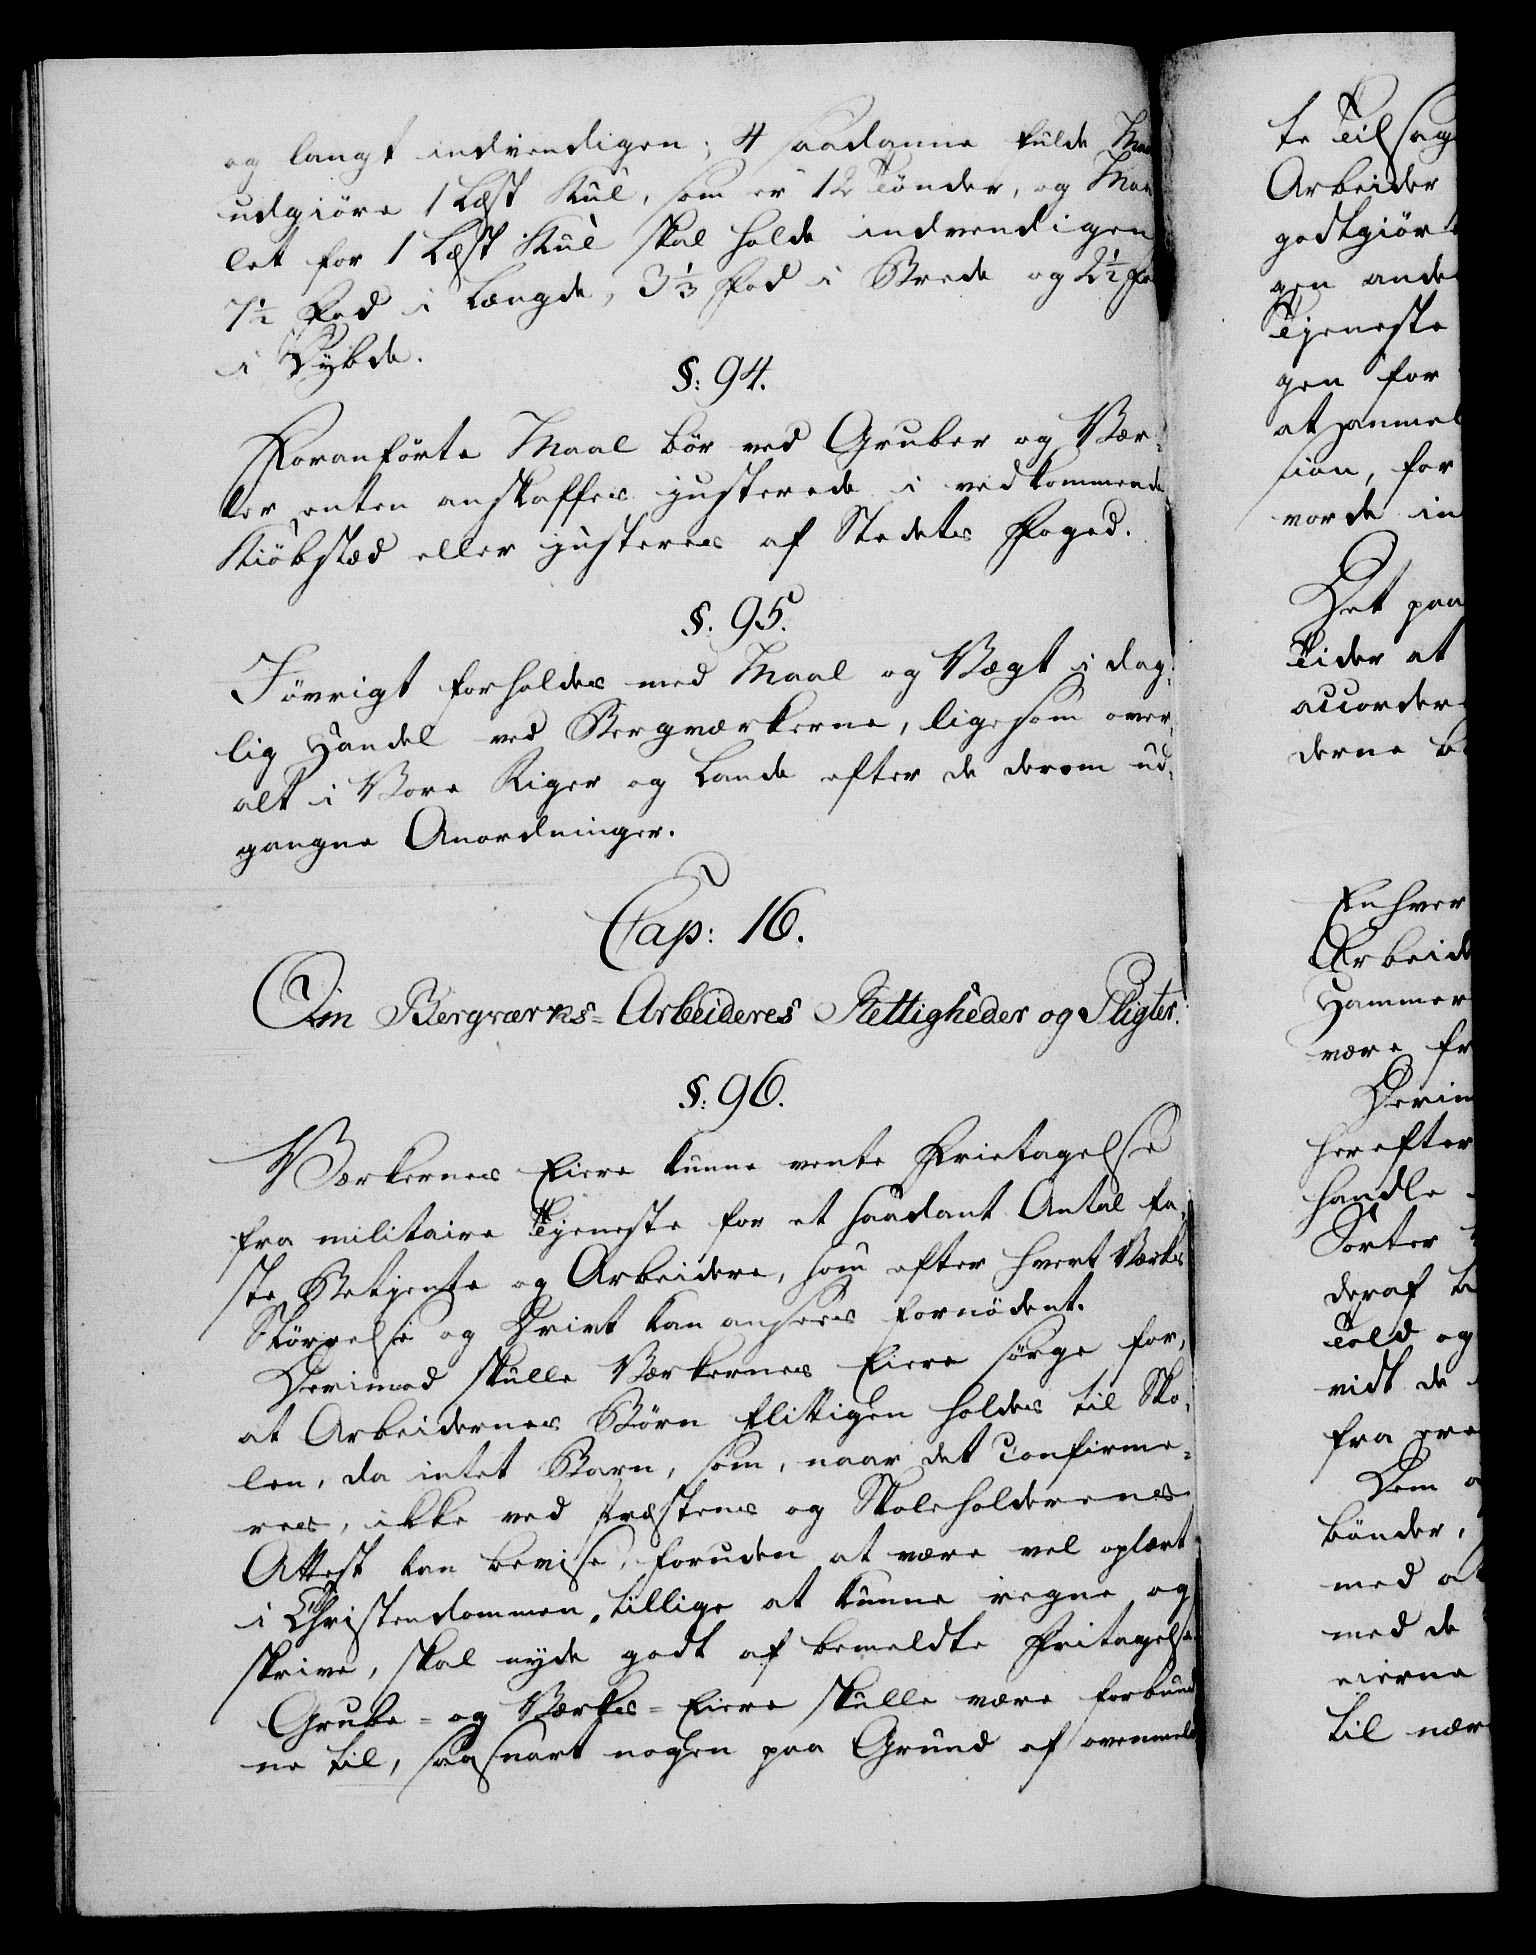 og langt indvendigen; 4 saadanne fulde Maa
udgiöre 1 Læst Kul, som er 12 Tönder, og Maa
let for 1 Læst Kul skal holde indvendigen
7½ Fod i Længde, 3⅓ Fod i Brede og 2½ Fo
i Dybde.
§: 94.
Foranförte Maal bör ved Gruber og Vær-
ker enten anskaffes justerede i vedkommende
Kiöbstæd eller justeres af Stedets Foged.
§. 95.
Iövrigt forholdes med Maal og Vægt i dag-
lig Handel ved Bergværkerne, ligesom over-
alt i Vore Riger og Lande efter de derom ud-
gangne Anordninger.
Cap: 16.
Om Bergværks-Arbeideres Rettigheder og Pligter.
§: 96.
Værkernes Eiere kunne vente Frietagelse
fra militaire Tjeneste for et saadant Antal fa-
ste Betjente og Arbeidere, som efter hvert Værks
Störrelse og Drivt kan ansees fornödent.
Derimod skulle Værkernes Eiere sörge for,
at Arbeidernes Börn flittigen holdes til Sko-
len, da intet Barn, som, naar det confirme-
res, ikke ved Præstens og Skoleholderens
Attest kan bevise, foruden at være vel oplært
i Christendommen, tillige at kunne regne og
skrive, skal nyde godt af bemeldte Fritagelse.
Grube- og Værks-Eiere skulle være forbund
ne til, saasnart nogen paa Grund af ovenmeld
te Tilsag
Arbeider
godtgiör
gen ande
Tjeneste
gen for
at anmel
sion, for
vorde in
Det paa
Tider at
accorder
derne b
Enhver
Arbeid
Hammer
være fr
Derim
herefter
handle
Sorter
deraf b
Told og
vidt de
fra
Dem
bönder,
med a
med de
eierne
til nær